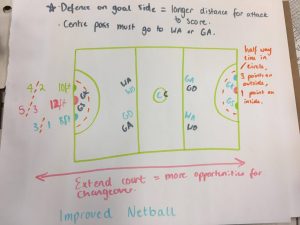 * Defence on goal side = longer distance for attack
to score.
· Centre pass must go to WA or GA.
half way
line in
circle.
3 points on
outside,
1 point on
inside.
4/2 10ft
5/3 12ft
3/1 8ft
WA
WD
GD
GA
C C
GA
GD
WA
WD
Extend court = more opportunities for
changeover.
Improved Netball